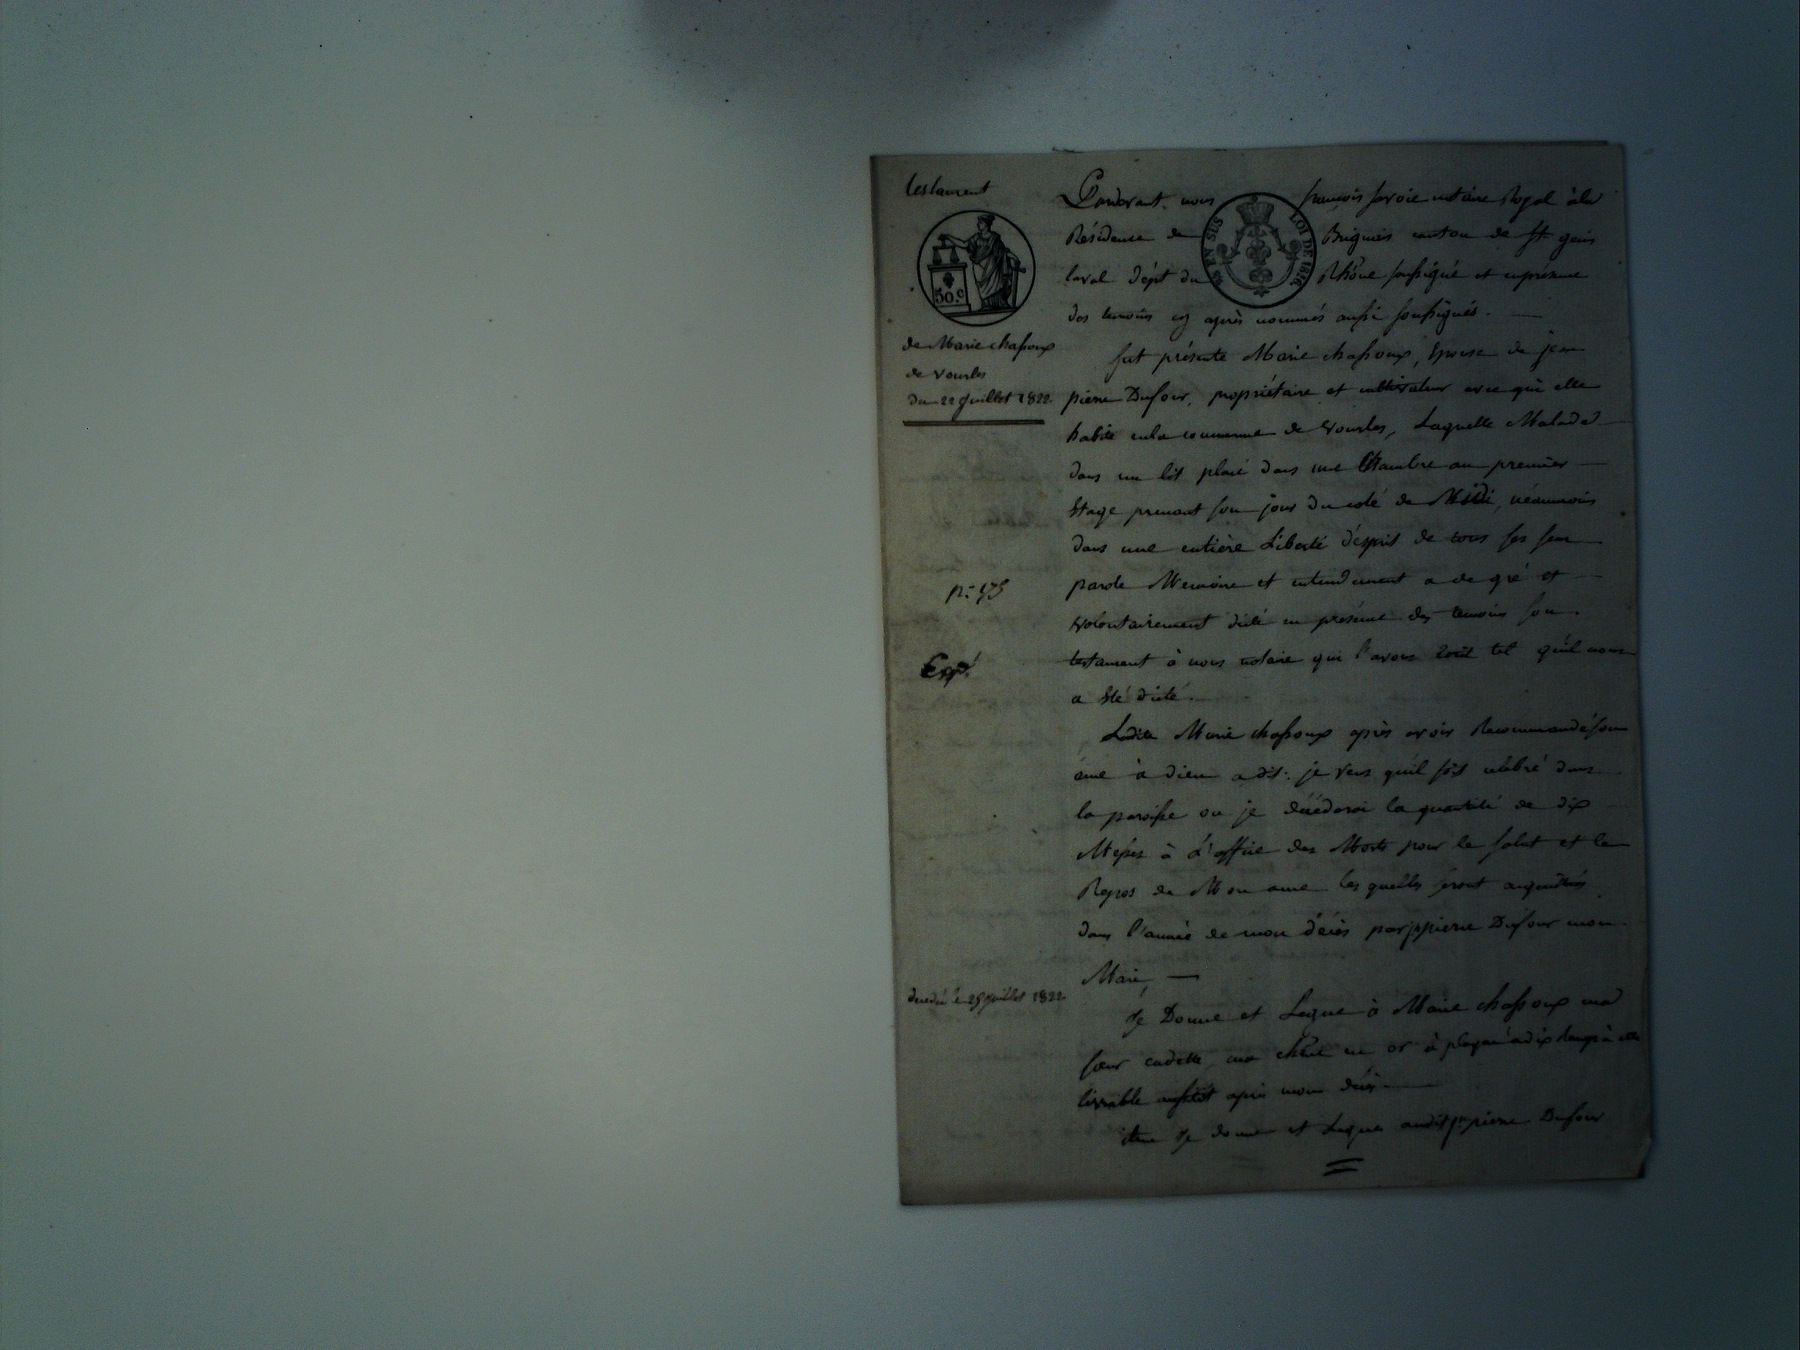 testament
50.c
de Marie chassoux
de Vourles
du 22 Juillet 1822.
n.° 175
Expé
décédée le 25 juillet 1822.
Pardevant nous françois savoie notaire Royal à la
EN SUS LOI DE 1816
Résidence de Brignais canton de St genis
laval dépt du Rhône soussigné et en présence
des temoins cy après nommés aussi soussignés.
fut présente Marie chassoux, Epouse de jean
pierre Dufour, propriétaire et cultivateur avec qui elle
habite en la commune de Vourles, Laquelle Malade
dans un lit placé dans une Chambre au premier
Etage prenant son jour du coté de Midi, néanmoins
dans une entière Liberté d'esprit de tous ses sens
parole Memoire et entendement a de gré et
volontairement dicté en présence des temoins son
testament à nous notaire qui l'avons écrit tel qu'il nous
a été dicté.
Ladite Marie chassoux après avoir Recommandé son
ame à dieu a dit: je veux qu'il soit celebré dans
la paroisse ou je décéderai la quantité de dix
Messes à L'office des Morts pour le salut et le
Repos de Mon ame les quelles seront acquittées
dans l'année de mon décès par jn pierre Dufour mon
Mari,
Je Donne et Legue à Marie chassoux ma
sœur cadette, ma chêne en or à
livrable aussitot après mon décès
item Je donne et Legue audit jn pierre Dufour